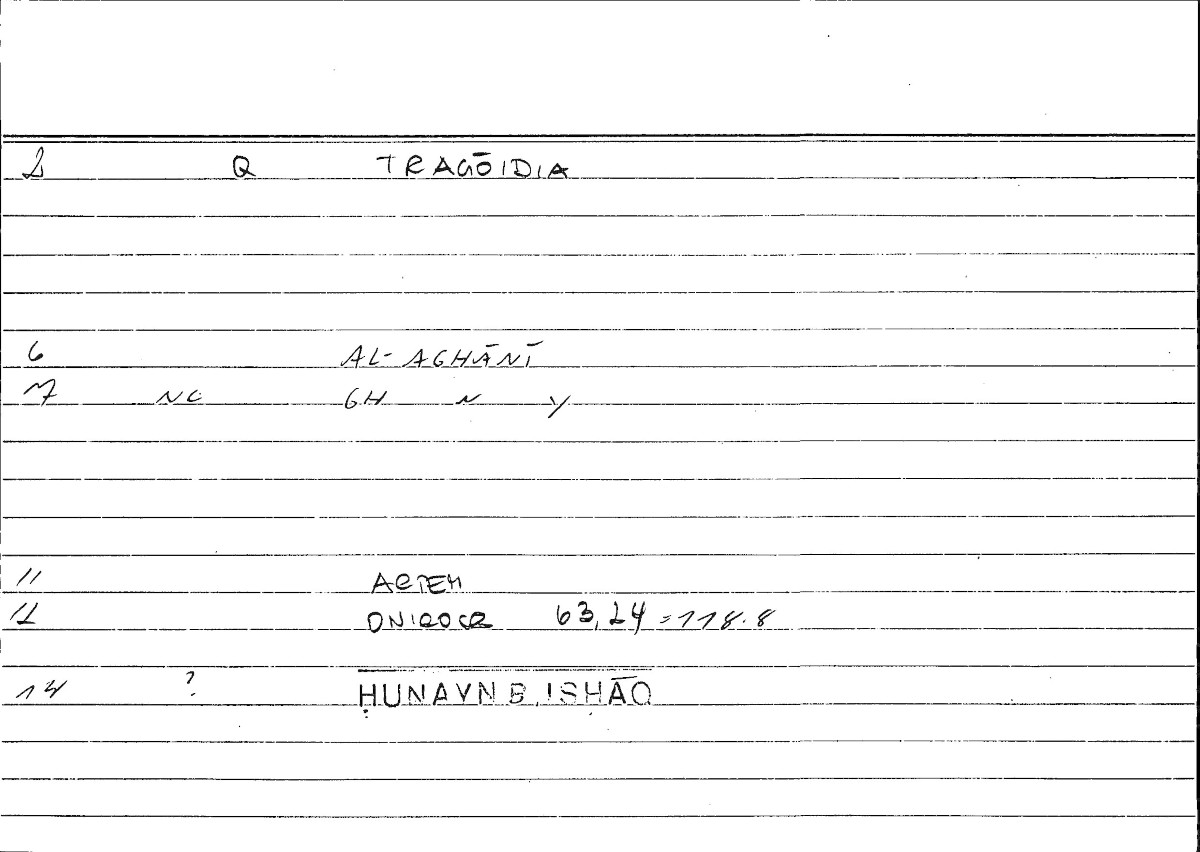 2 Q TRAGŌIDIA
6 AL-AGHĀNĪ
7 NC GH N Y
11 ARTEM
12 ONIROCR 63,24 = 118.8
14 ? ḤUNAYN B. ISḤĀQ